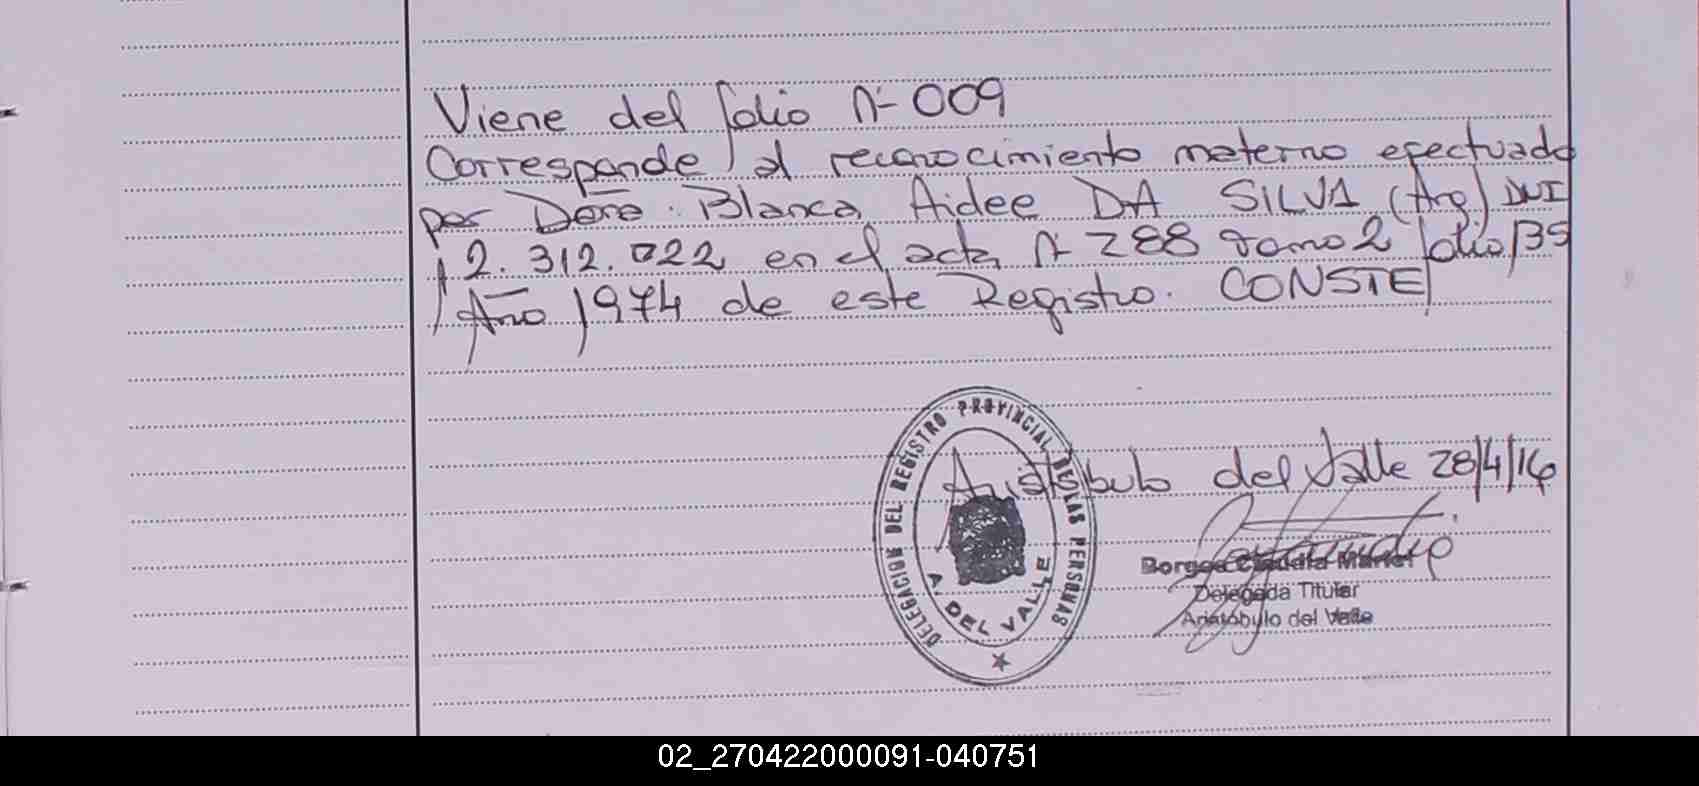 Viene del folio N- 009
Corresponde al reconocimiento materno efectuado
por Doña. Blanca Aidee DA SILVA (Arg) DNI
12.312.022 en el acta N- 288 tomo 2 folio 135
Año 1974 de este Registro. CONSTE
DELEGACION DEL REGISTRO PROVINCIAL DE LAS PERSONAS
A. DEL VALLE
Aristóbulo del Valle 28/4/16
Borges Claudia Mariel
Delegada Titular
Aristóbulo del Valle
02_270422000091-040751